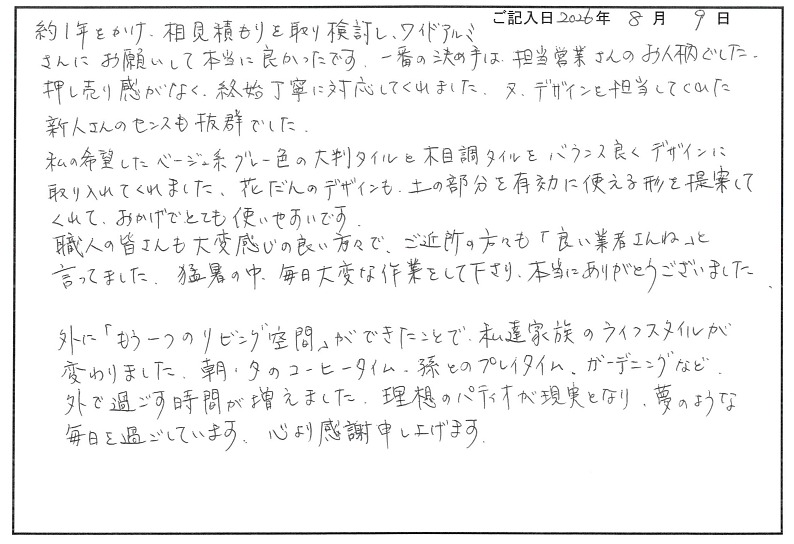 ご記入日 2026年 8月 9日
約1年をかけ、相見積もりを取り検討し、ワイドアルミ
さんにお願いして本当に良かったです。一番の決め手は、担当営業さんのお人柄でした。
押し売り感がなく、終始丁寧に対応してくれました。又、デザインを担当してくれた
新人さんのセンスも抜群でした。
私の希望したベージュ系グレー色の大判タイルと木目調タイルをバランス良くデザインに
取り入れてくれました。花だんのデザインも、土の部分を有効に使える形を提案して
くれて、おかげでとても使いやすいです。
職人の皆さんも大変感じの良い方々で、ご近所の方々も「良い業者さんね」と
言ってました。猛暑の中、毎日大変な作業をして下さり、本当にありがとうございました。
外に「もう一つのリビング空間」ができたことで、私達家族のライフスタイルが
変わりました。朝・夕のコーヒータイム、孫とのプレイタイム、ガーデニングなど、
外で過ごす時間が増えました。理想のパティオが現実となり、夢のような
毎日を過ごしています。心より感謝申し上げます。